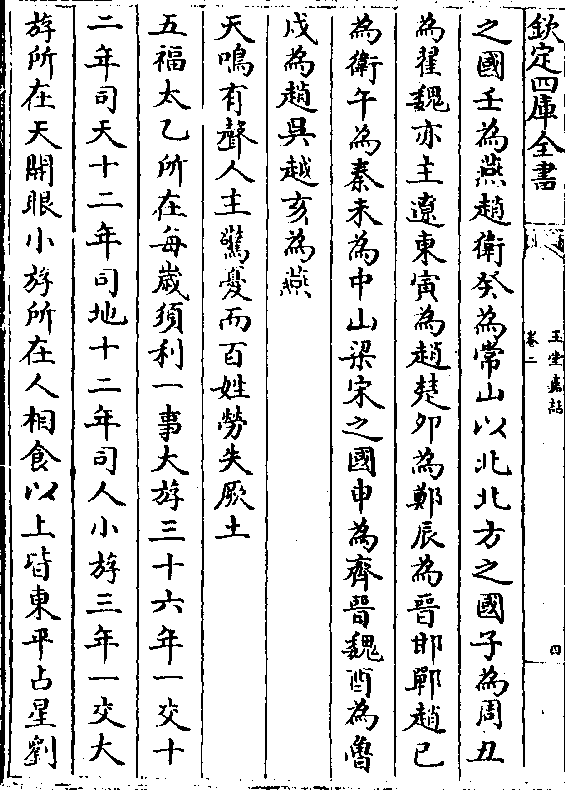 欽定四庫全書
玉堂嘉話
卷二
四
之國壬為燕趙衛癸為常山以北北方之國子為周丑
為翟魏亦主遼東寅為趙楚卯為鄭辰為晉邯鄲趙巳
為衛午為秦未為中山梁宋之國申為齊晉魏酉為魯
戌為趙吳越亥為燕
天鳴有聲人主驚憂而百姓勞失厥土
五福太乙所在每歲須利一事大游三十六年一交十
二年司天十二年司地十二年司人小游三年一交大
游所在天開眼小游所在人相食以上皆東平占星劉